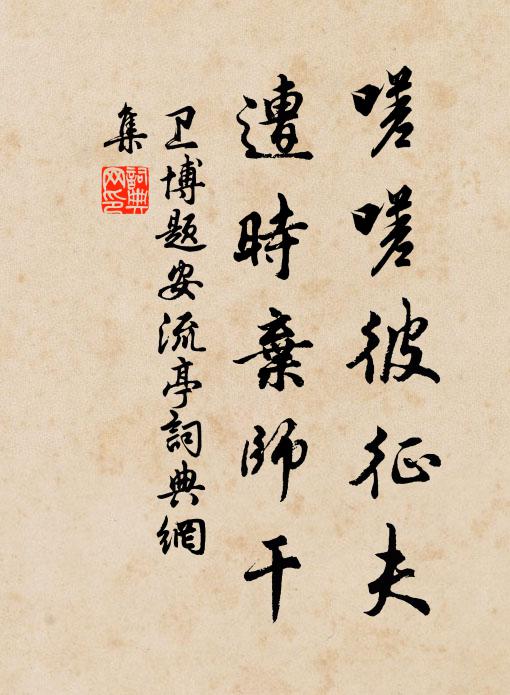 嗟嗟彼征夫
遭時棄師干
卫博题安流亭詞典網
集
詞典
网印